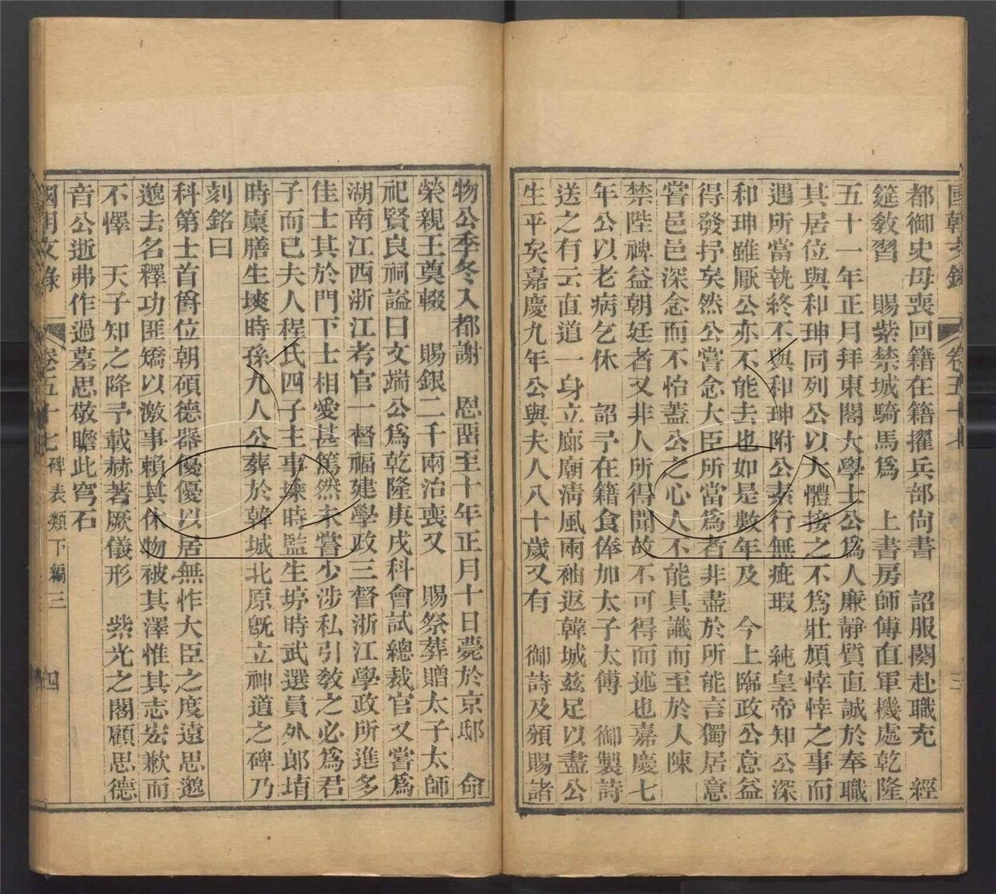 國朝文錄 卷五十七 三
都御史母喪回籍在籍擢兵部尙書 詔服闋赴職充 經
筵敎習 賜紫禁城騎馬爲 上書房師傅直軍機處乾隆
五十一年正月拜東閣大學士公爲人廉靜質直誠於奉職
其居位與和珅同列公以大體接之不爲壯頄悻悻之事而
遇所當執終不與和珅附公素行無疵瑕 純皇帝知公深
和珅雖厭公亦不能去也如是數年及 今上臨政公意益
得發抒矣然公嘗念大臣所當爲者非盡於所能言獨居意
嘗邑邑深念而不怡蓋公之心人不能具識而至於人陳
禁陛裨益朝廷者又非人所得聞故不可得而述也嘉慶七
年公以老病乞休 詔予在籍食俸加太子太傅 御製詩
送之有云直道一身立廊廟淸風兩袖返韓城茲足以盡公
生平矣嘉慶九年公與夫人八十歲又有 御詩及頒賜諸
物公季冬入都謝 恩畱至十年正月十日薨於京邸 命
榮親王奠輟 賜銀二千兩治喪又 賜祭葬贈太子太師
祀賢良祠謚曰文端公爲乾隆庚戌科會試總裁官又嘗爲
湖南江西浙江考官一督福建學政三督浙江學政所進多
佳士其於門下士相愛甚篤然未嘗少涉私引敎之必爲君
子而已夫人程氏四子主事𡎺時監生𡊣時武選員外郎堉
時廩膳生埉時孫九人公葬於韓城北原旣立神道之碑乃
刻銘曰
科第士首爵位朝碩德器優優以居無怍大臣之度遠思邈
邈去名釋功匪矯以激事賴其休物被其澤惟其志宏歉而
不懌 天子知之降予載赫著厥儀形 紫光之閣顧思德
音公逝弗作過墓思敬瞻此穹石
國朝文錄 卷五十七 碑表類下編三 四